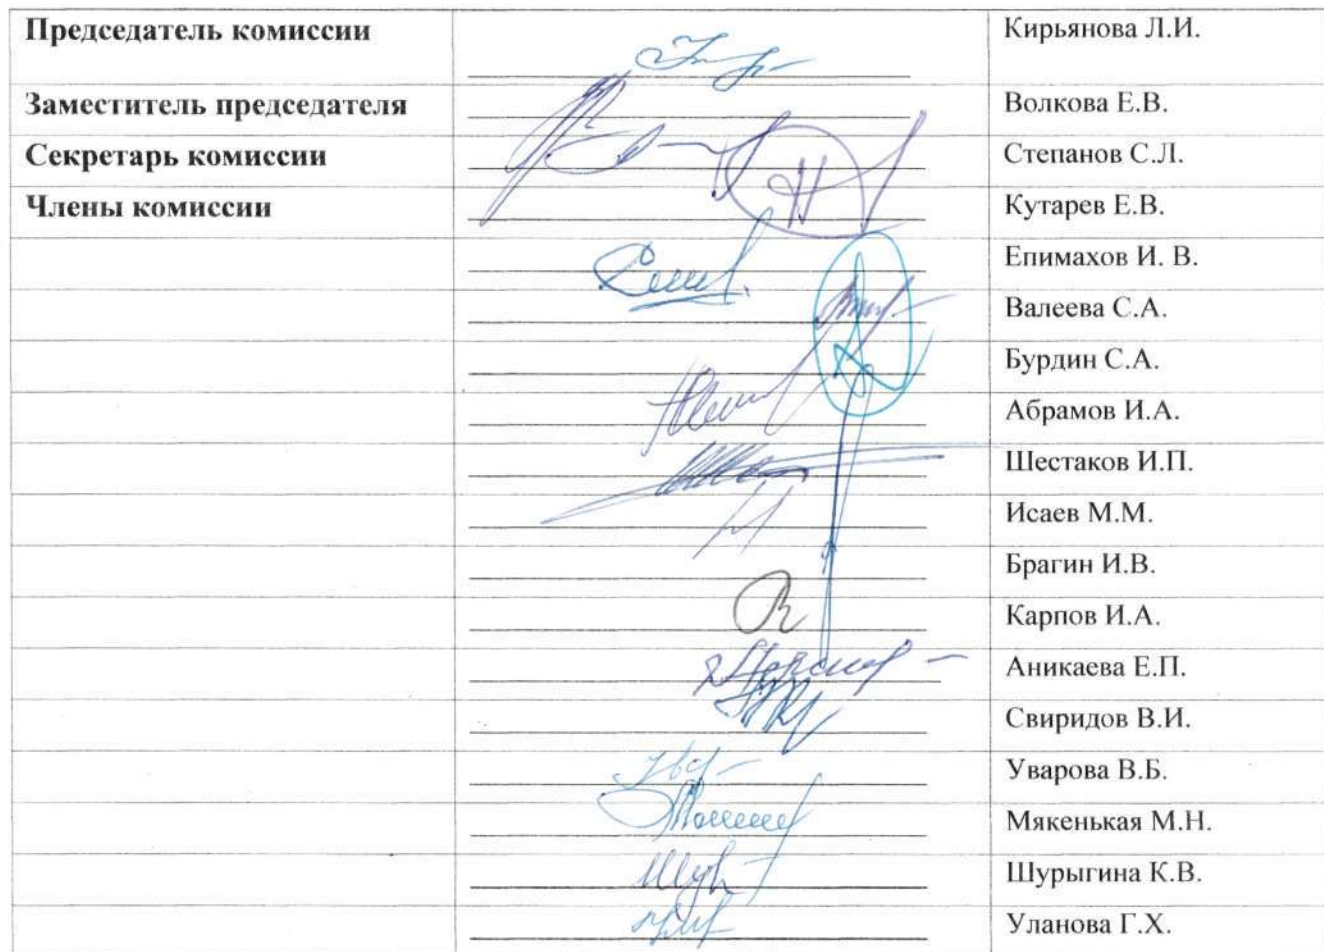 Председатель комиссии Кирьянова Л.И.
Заместитель председателя Волкова Е.В.
Секретарь комиссии Степанов С.Л.
Члены комиссии Кутарев Е.В.
Епимахов И. В.
Валеева С.А.
Бурдин С.А.
Абрамов И.А.
Шестаков И.П.
Исаев М.М.
Брагин И.В.
Карпов И.А.
Аникаева Е.П.
Свиридов В.И.
Уварова В.Б.
Мякенькая М.Н.
Шурыгина К.В.
Уланова Г.Х.